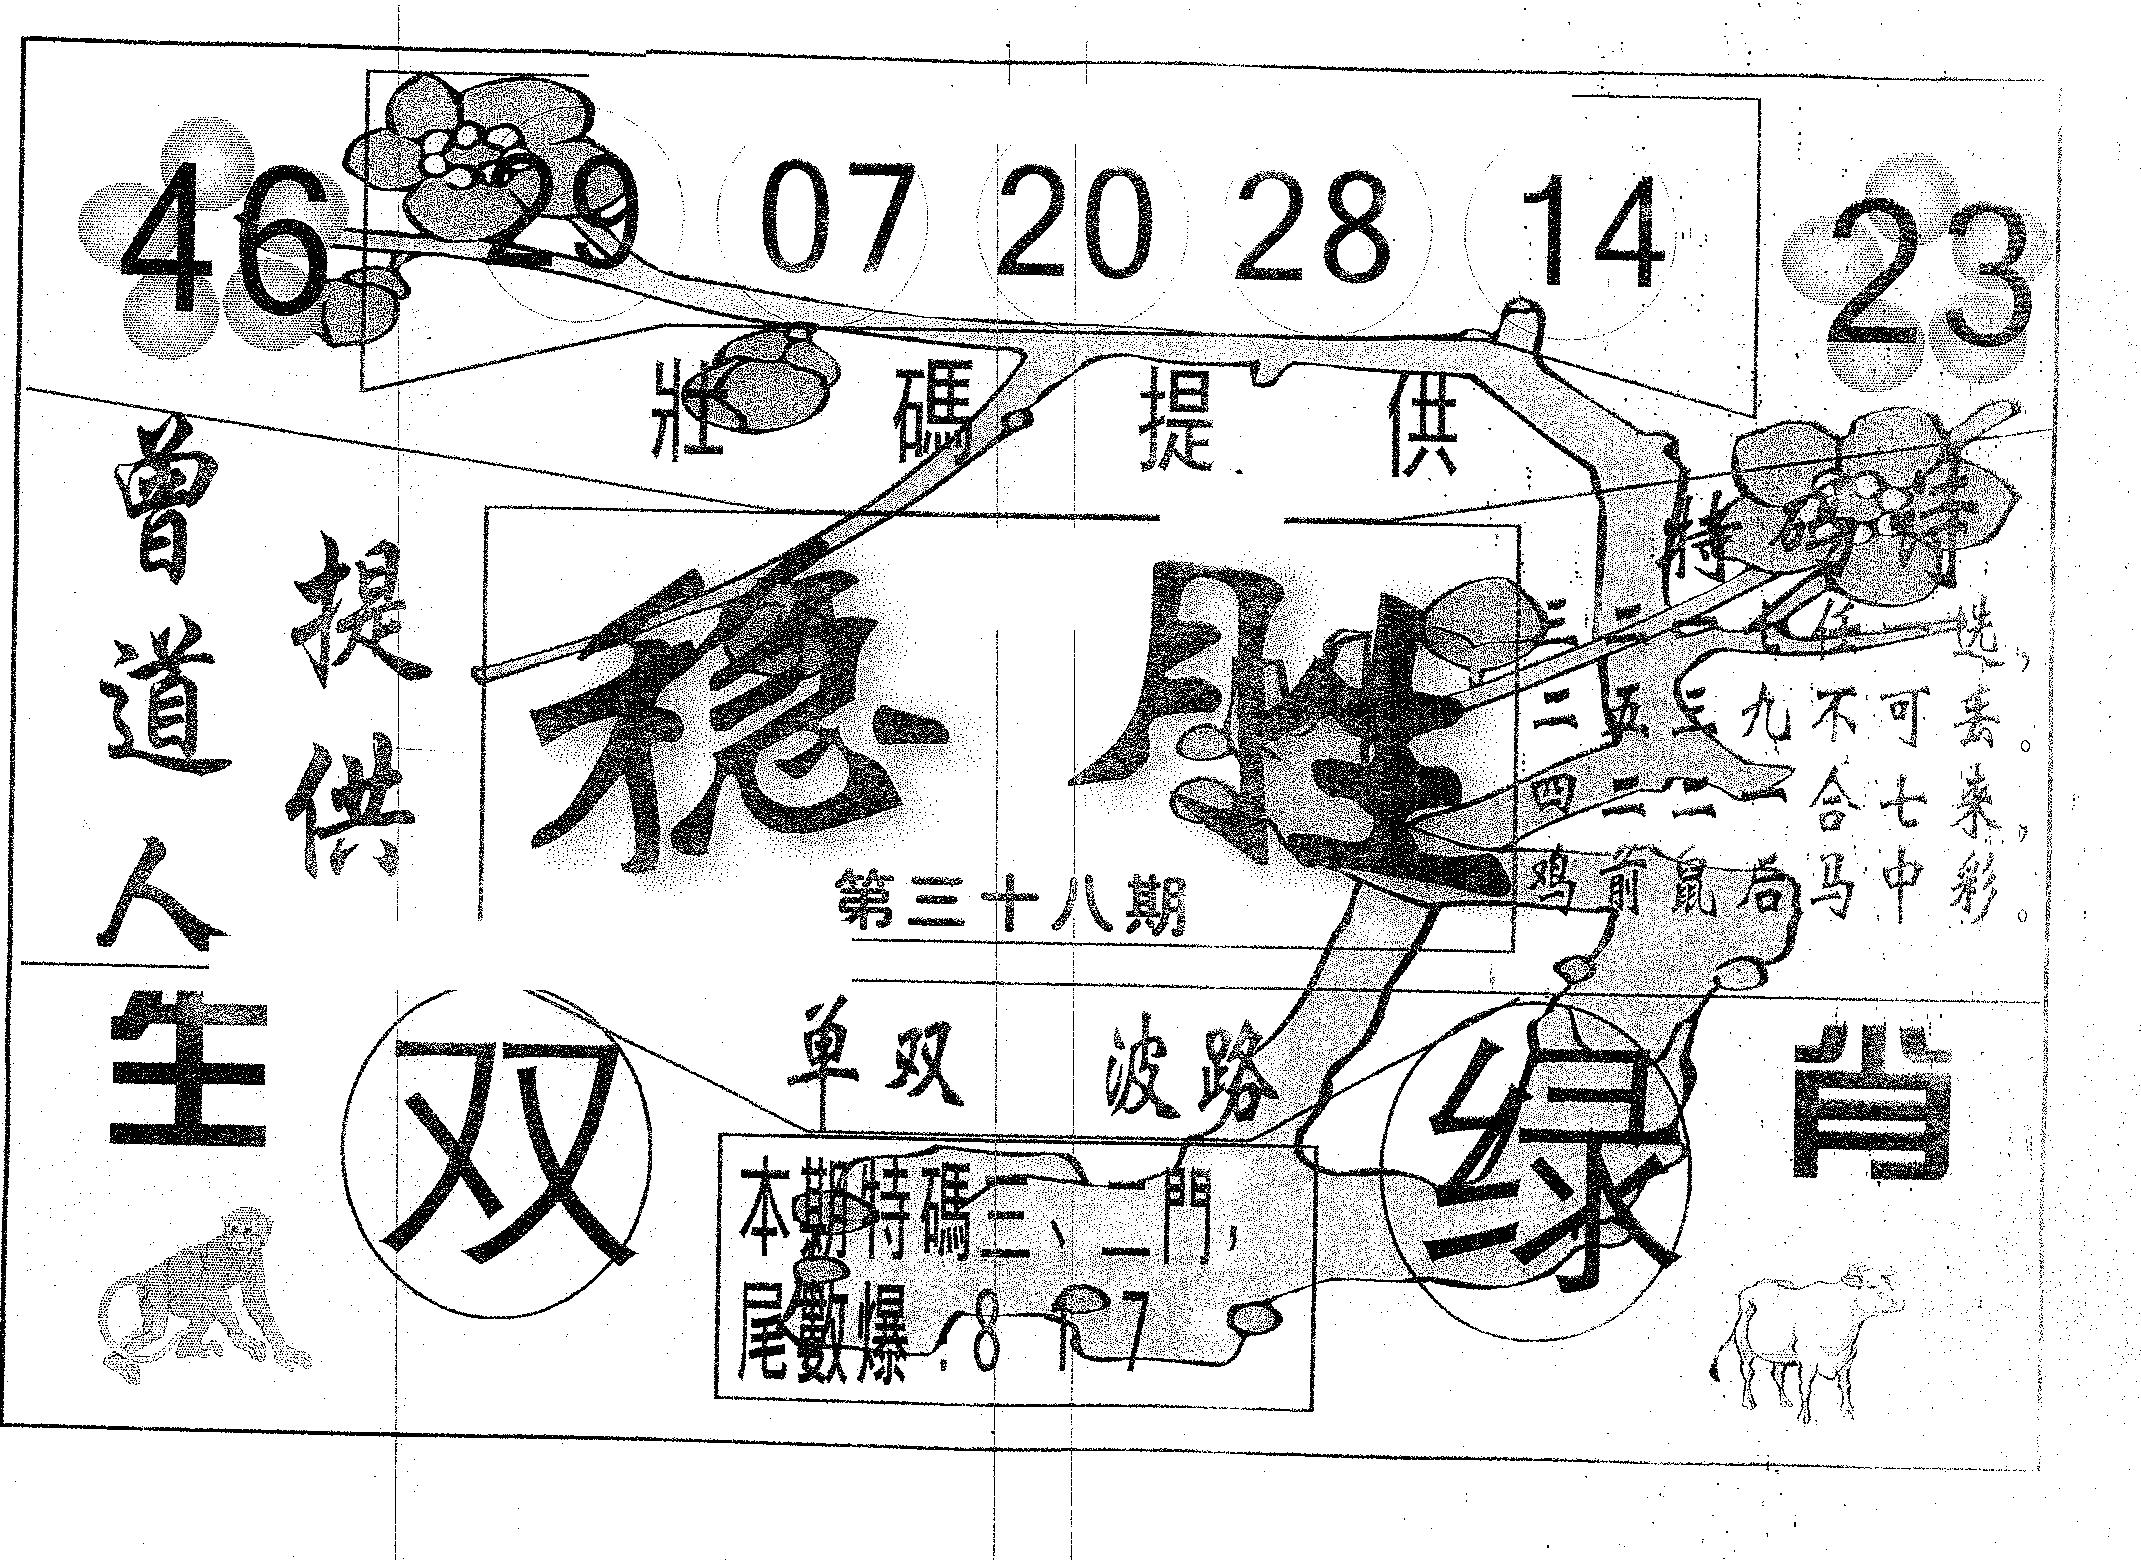 46 29 07 20 28 14 23
壯碼提供
曾道人
提供
稳胜
第三十八期
特碼诗
三二一七任 选，
二五三九不可丢。
四二二一合七来，
鸡前鼠后马中彩。
生肖
双
单双 波路
绿
本期特碼三、二門，
尾數爆:8 1 7